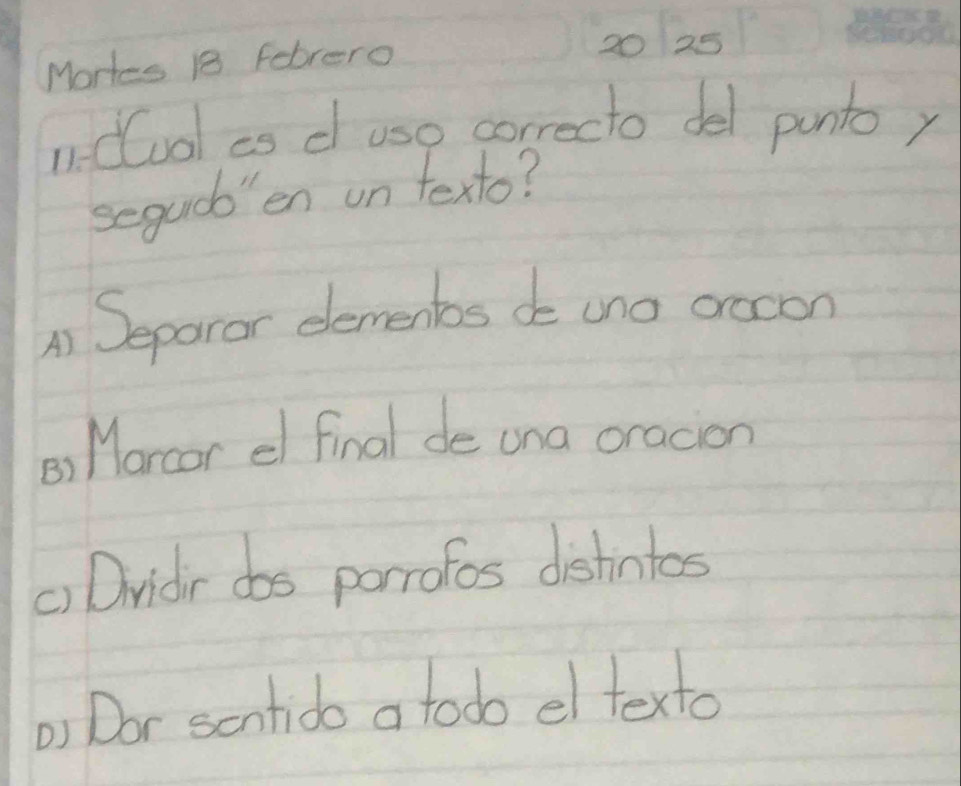 BACK 2
SCHOOL
Martes 18 Febrero 20 25
11.- ¿Cual es el uso correcto del punto y
seguido" en un texto?
A) Separar elementos de una oracion
B) Marcar el final de una oracion
C) Dividir dos parrafos distintos
D) Dar sentido a todo el texto